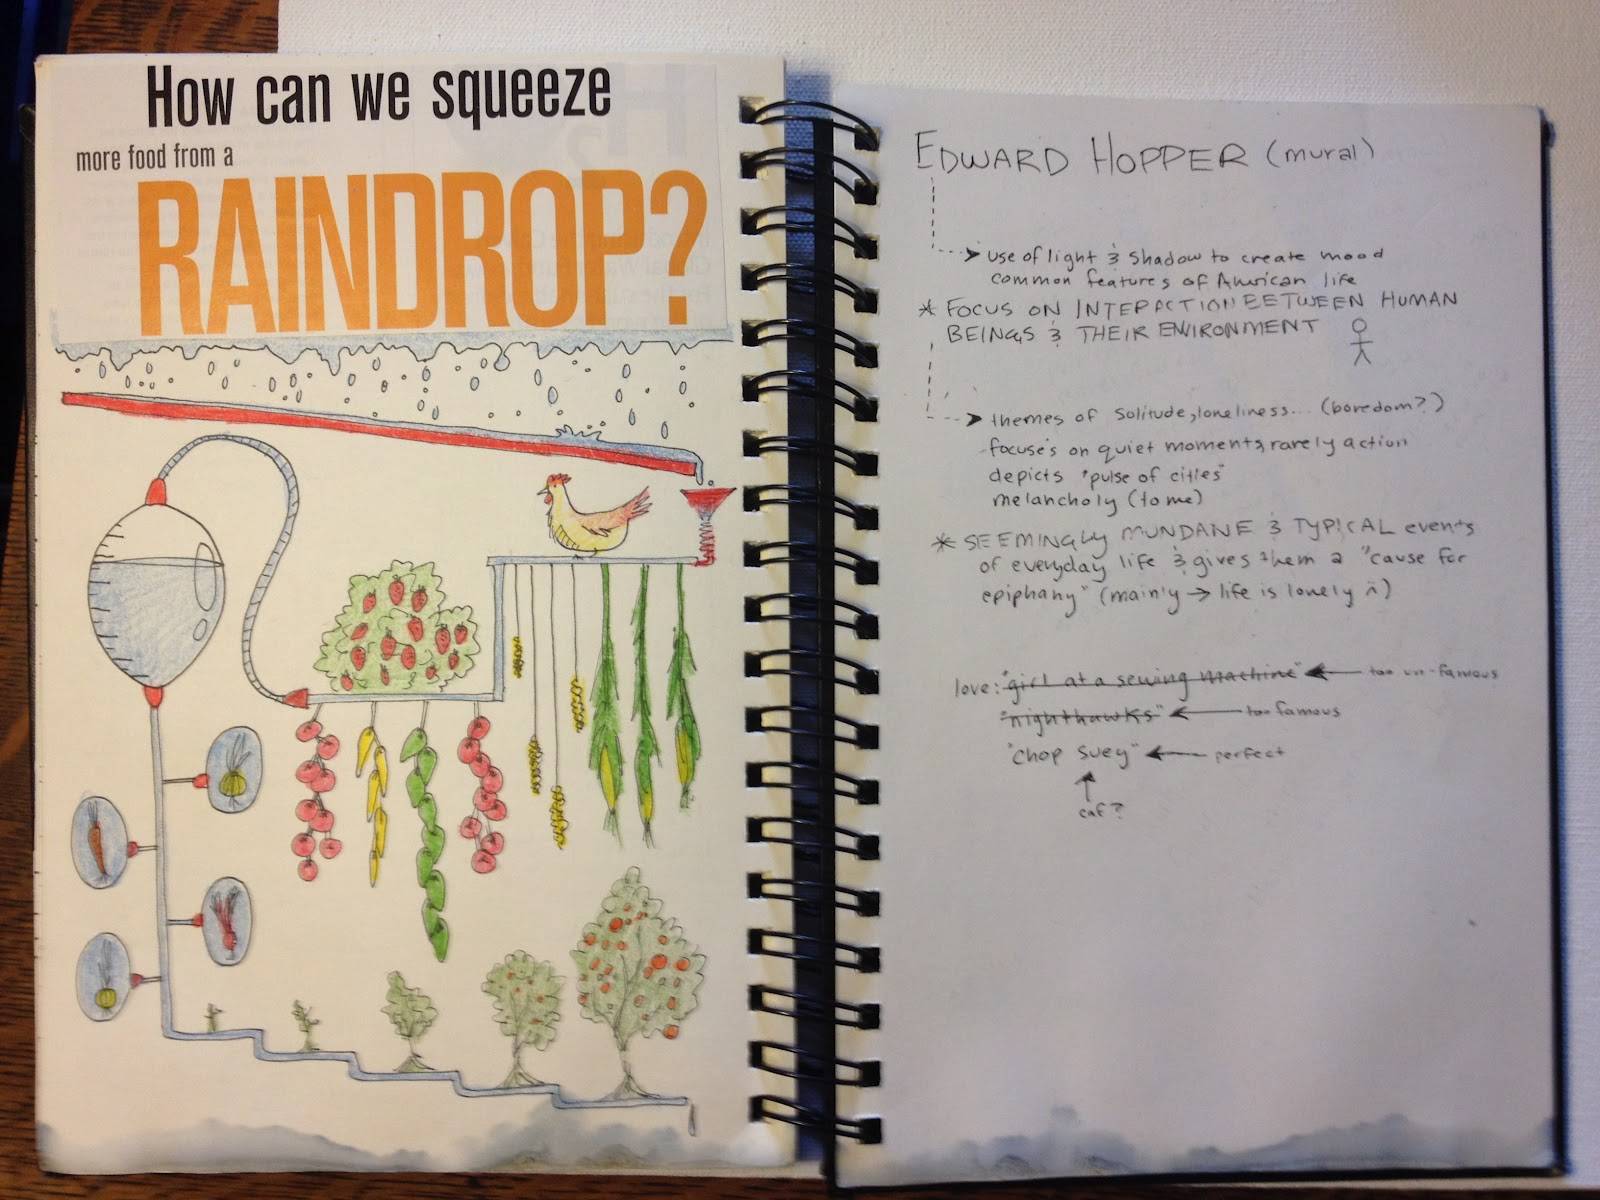 How can we squeeze
more food from a
RAINDROP?
EDWARD HOPPER (mural)
use of light & shadow to create mood
common features of American life
* FOCUS ON INTERACTION BETWEEN HUMAN
BEINGS & THEIR ENVIRONMENT
themes of solitude, loneliness... (boredom?)
focuses on quiet moments, rarely action
depicts "pulse of cities"
melancholy (to me)
* SEEMINGLY MUNDANE & TYPICAL events
of everyday life & gives them a "cause for
epiphany" (mainly → life is lonely :()
love: "girl at a sewing machine" ← too un-famous
"nighthawks" ← too famous
"chop suey" ← perfect
caf?